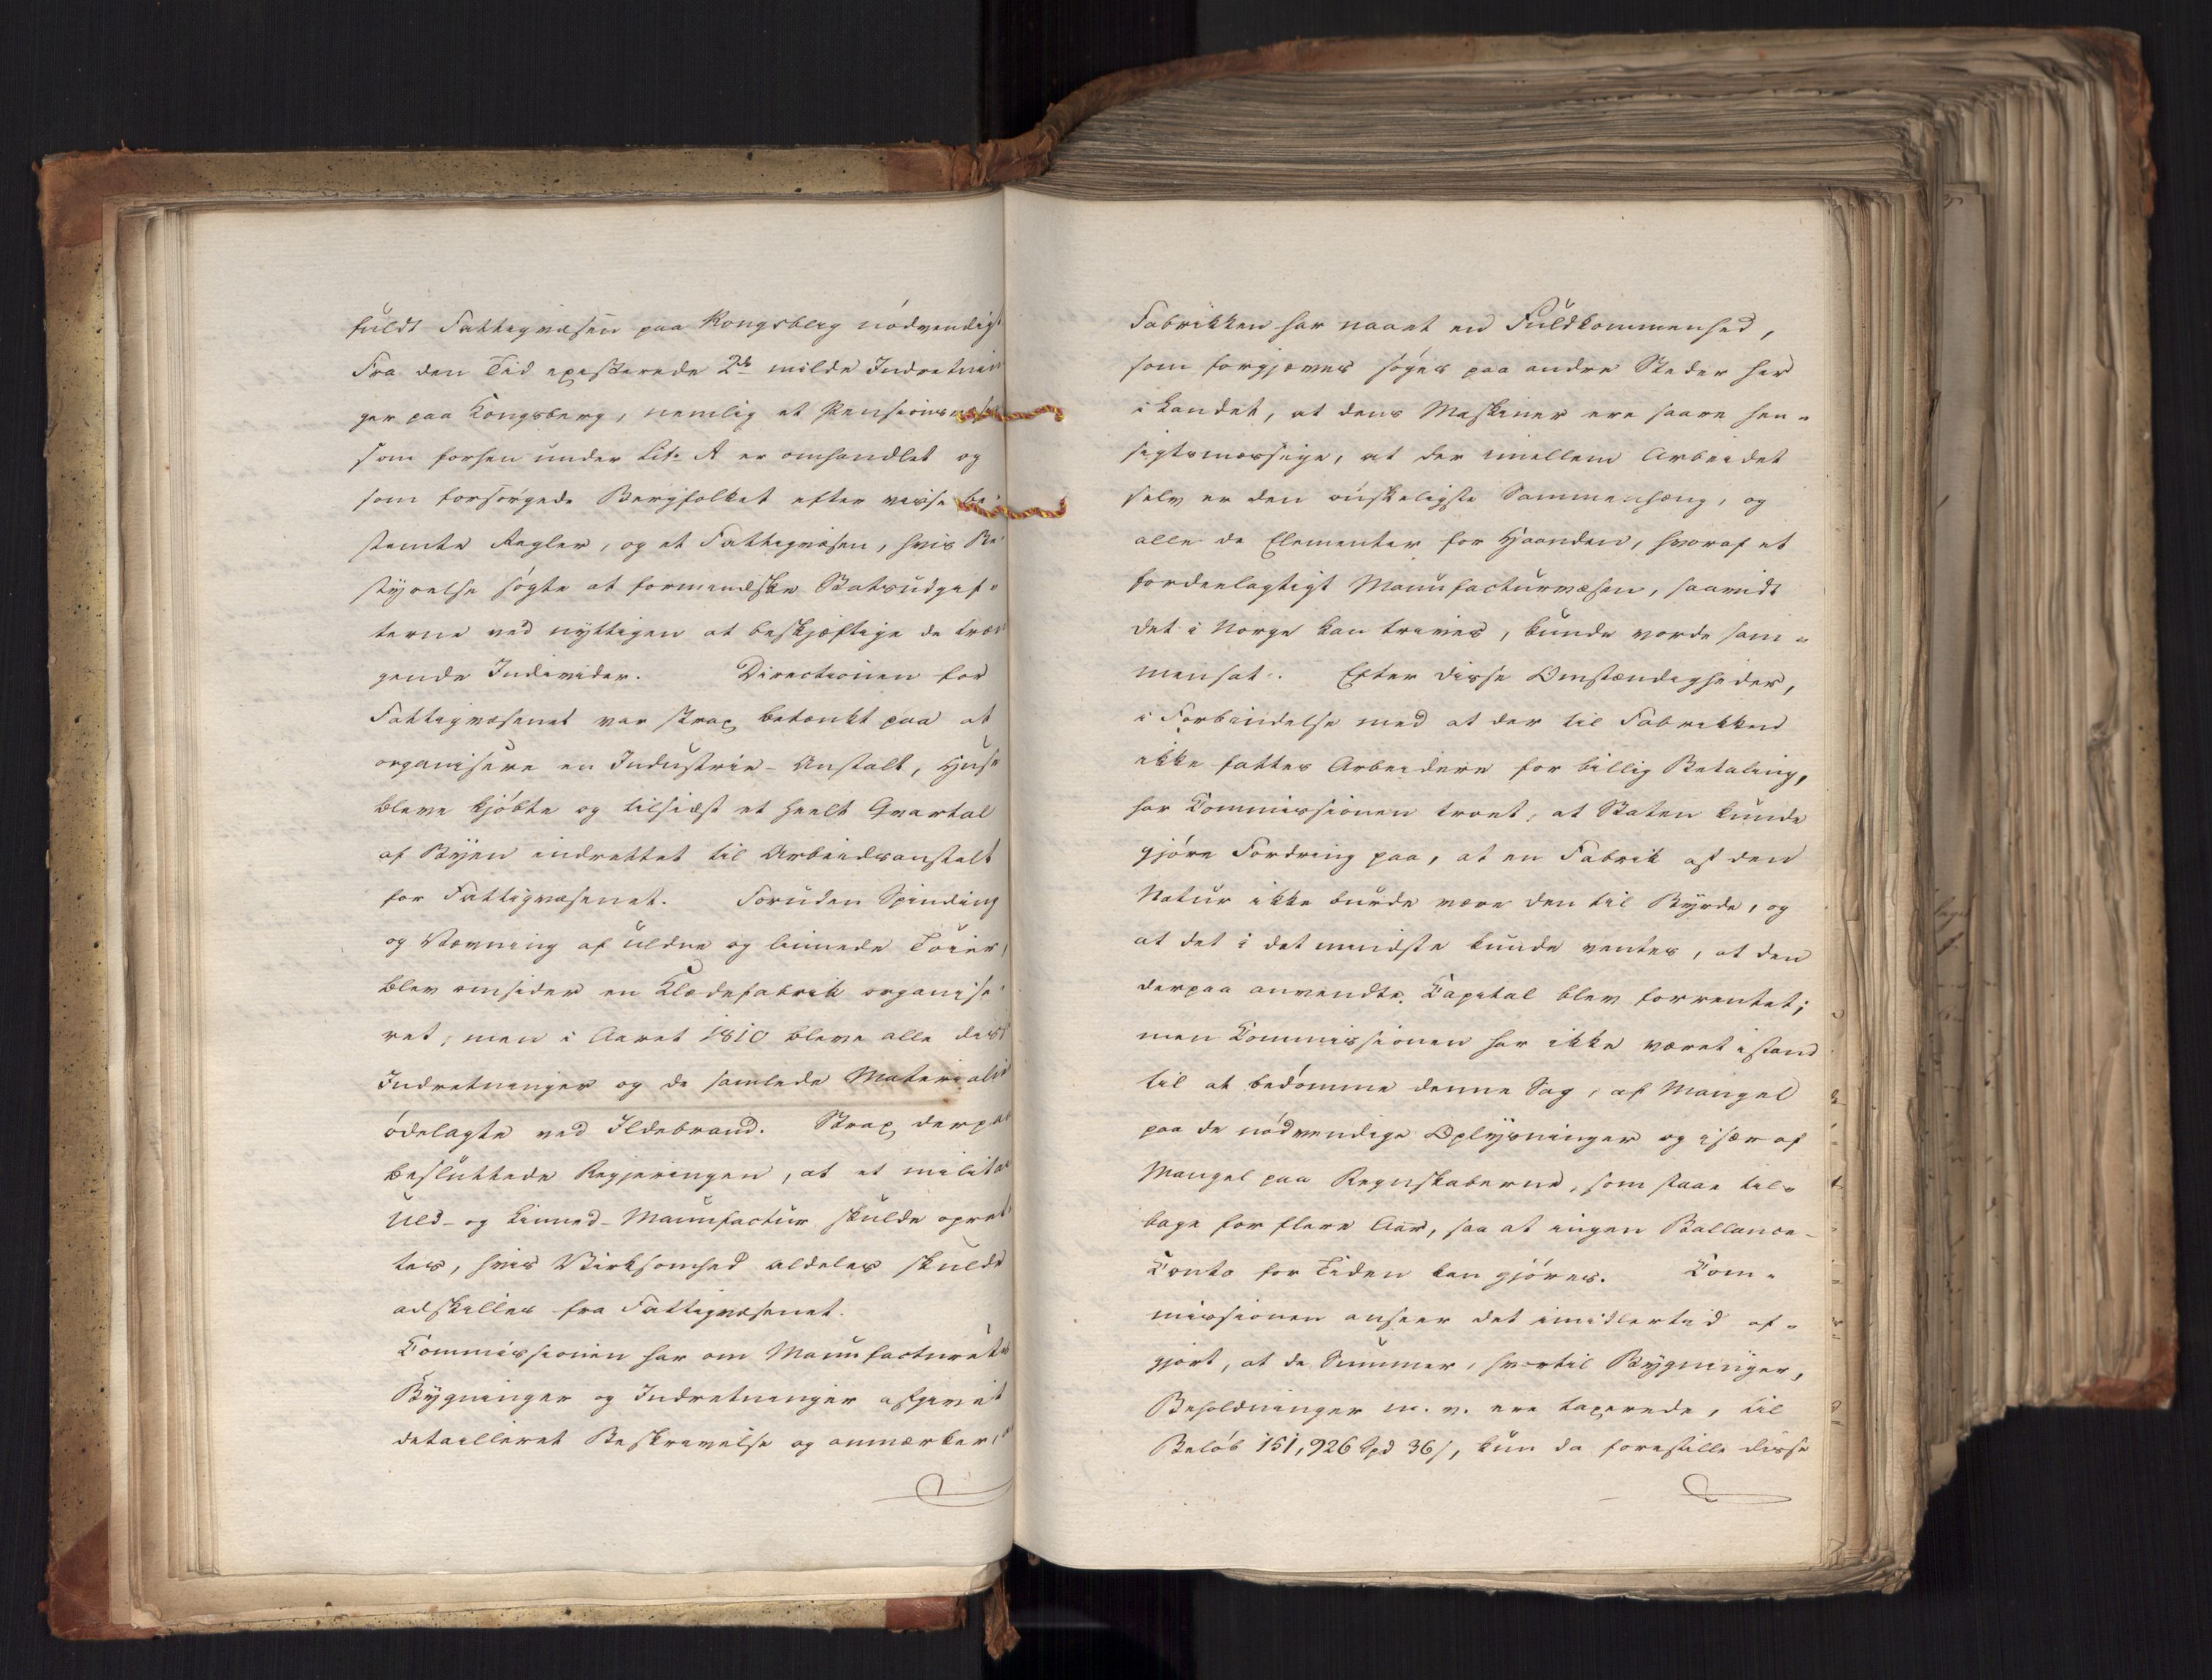 fuldt Fattigvæsen paa Kongsberg nödvendigt
Fra den Tid existerede 2de milde Indretnin
ger paa Kongsberg, nemlig et Pensionsvæsen
som forhen under Lit. A er omhandlet og
som forsörgede Bergfolket efter visse be-
stemte Regler, og et Fattigvæsen, hvis Be-
styrelse sögte at formindske Statsudgif-
terne ved nyttigen at beskjæftige de træn
gende Individer. Directionen for
Fattigvæsenet var strax betænkt paa at
organisere en Industrie-Anstalt, Huse
bleve kjöbte og tilsidst et heelt Qvartal
af Byen indrettet til Arbeidsanstalt
for Fattigvæsenet. Foruden Spinding
og Vævning af uldne og linnede Töier,
blev omsider en Klædefabrik organise-
ret, men i Aaret 1810 bleve alle disse
Indretninger og de samlede Materialier
ödelagte ved Ildebrand. Strax derpaa
besluttede Regjeringen, at et militair
Uld- og Linned-Manufactur skulde opret-
tes, hvis Virksomhed aldeles skulde
adskilles fra Fattigvæsenet.
Commissionen har om Manufacturets
Bygninger og Indretninger afgivet
detailleret Beskrivelse og anmærker,
Fabrikken har naaet en Fuldkommenhed,
som forgjæves söges paa andre Steder her
i Landet, at dens Maskiner ere saare hen-
sigtsmæssige, at der imellem Arbeidet
selv er den önskeligste Sammenhæng, og
alle de Elementer for Haanden, hvoraf et
fordeelagtigt Manufacturvæsen, saavidt
det i Norge kan trives, kunde vorde sam-
mensat. Efter disse Omstændigheder,
i Forbindelse med at der til Fabrikken
ikke fattes Arbeidere for billig Betaling,
har Commissionen troet, at Staten kunde
gjöre Fordring paa, at en Fabrik af den
Natur ikke burde være den til Byrde, og
at det i det mindste kunde ventes, at den
derpaa anvendte Capital blev forrentet;
men Commissionen har ikke været istand
til at bedömme denne Sag, af Mangel
paa de nödvendige Oplysninger og især af
Mangel paa Regnskaberne, som staae til-
bage for flere Aar, saa at ingen Ballance-
Conto for Tiden kan gjöres. Com-
missionen anseer det imidlertid af-
gjort, at de Summer, hvortil Bygninger,
Beholdninger m. v. ere taxerede, til
Belöb 151,926 Spd 36 s, kun da forestille disse